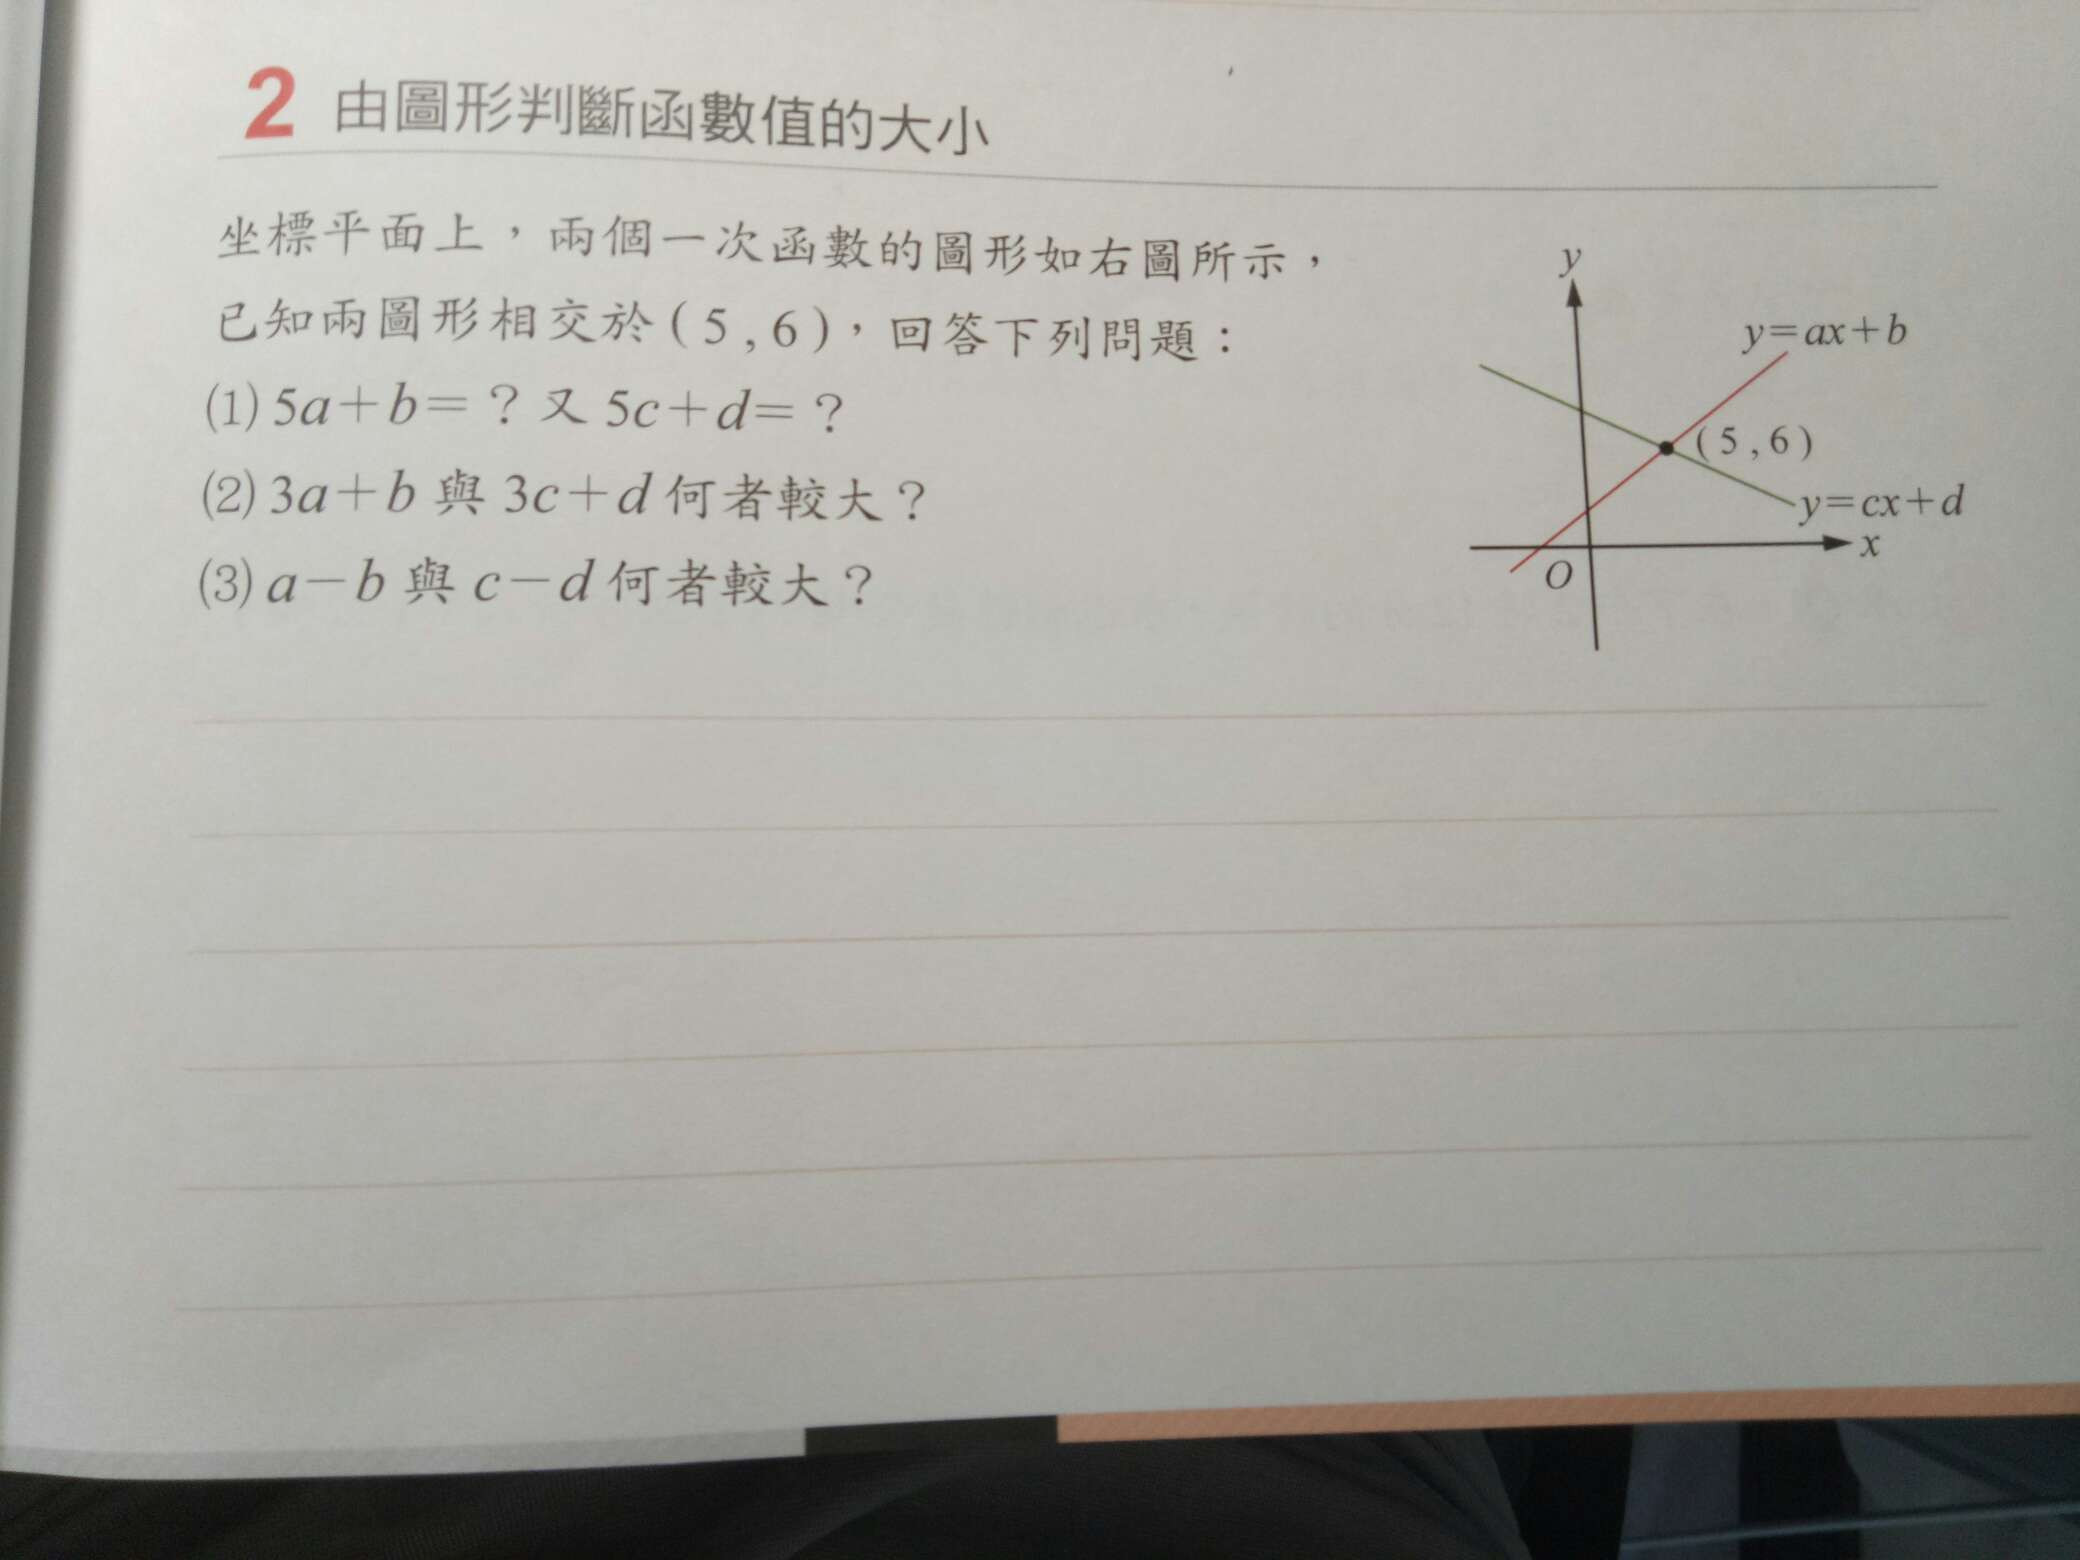 2 由圖形判斷函數值的大小
坐標平面上，兩個一次函數的圖形如右圖所示，
已知兩圖形相交於(5,6)，回答下列問題：
(1) 5a+b=？又 5c+d=？
(2) 3a+b 與 3c+d 何者較大？
(3) a-b 與 c-d 何者較大？
y
y=ax+b
(5,6)
y=cx+d
x
O